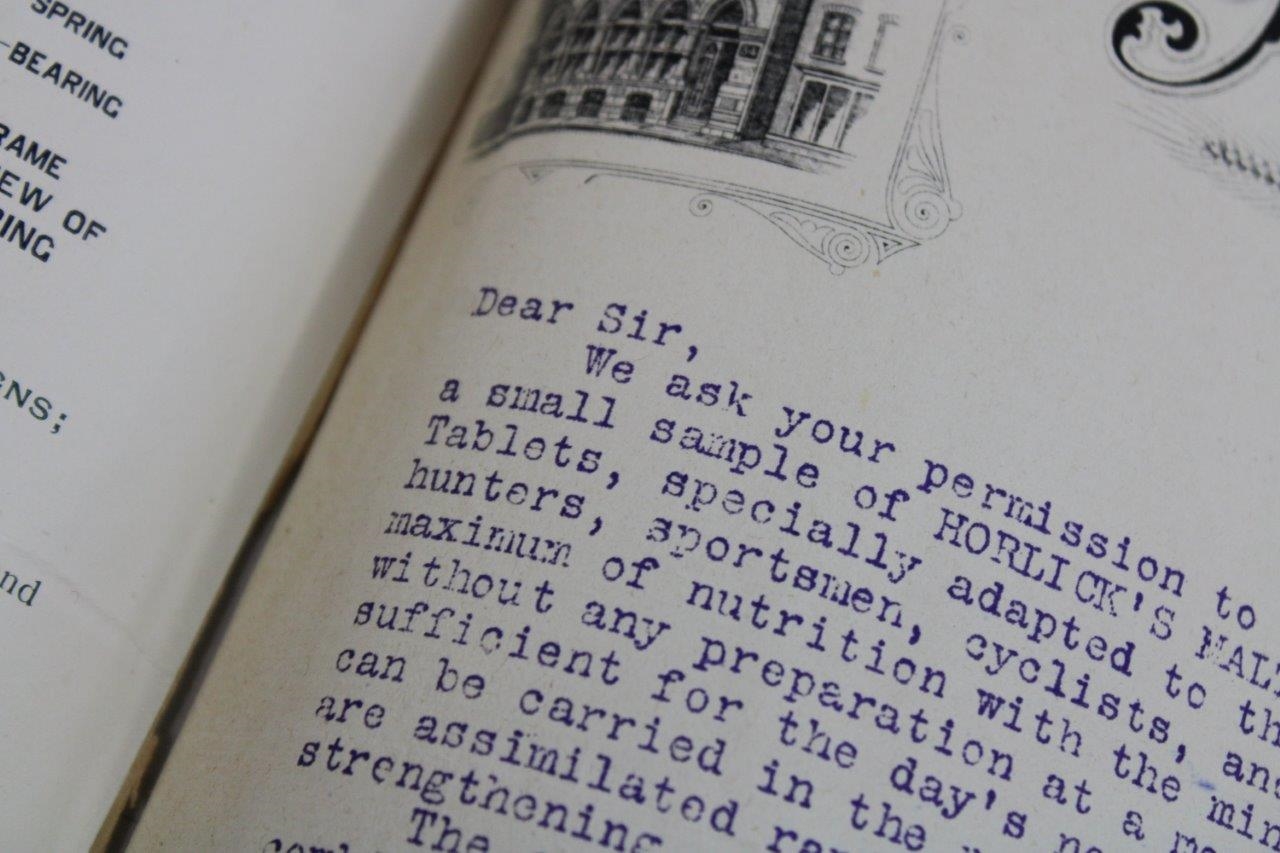 SPRING
BEARING
RAME
EW OF
RING
ENS;
nd
Dear Sir,
We ask your permission to
a small sample of HORLICK'S MAL
Tablets, specially adapted to th
hunters, sportsmen, cyclists, and
maximum of nutrition with the min
without any preparation at a
sufficient for the day's
can be carried in the
are assimilated
strengthening
The